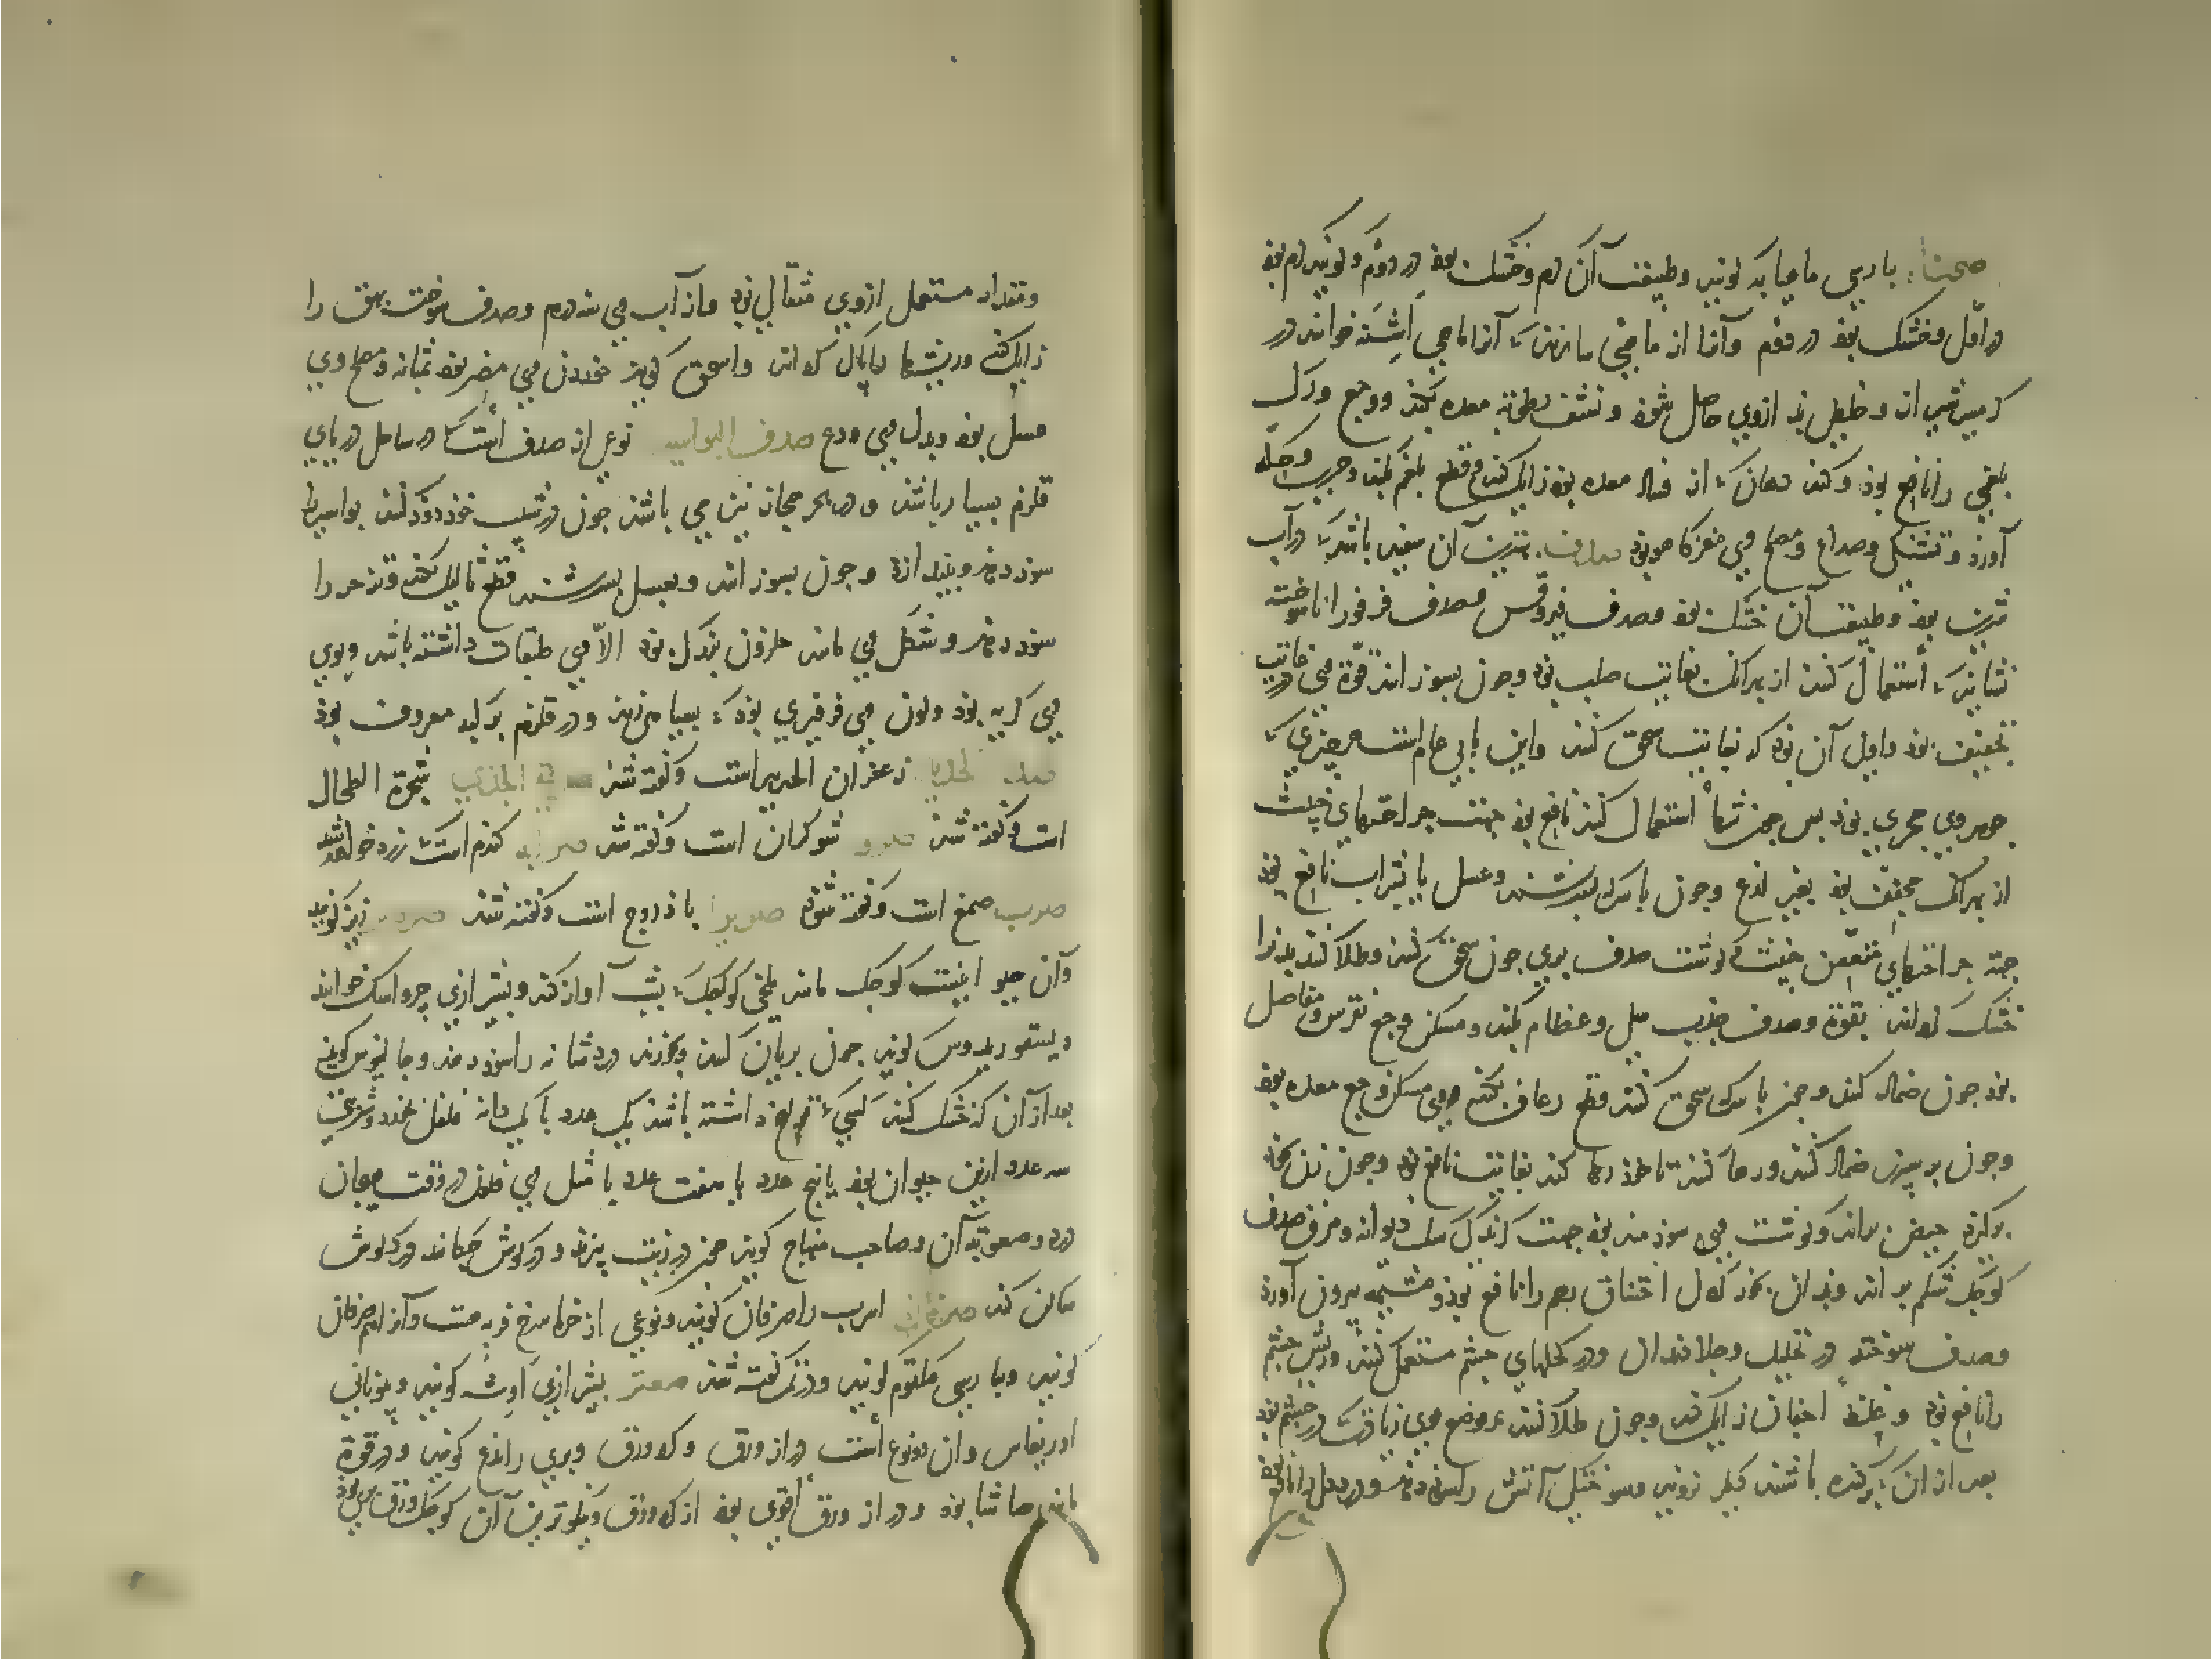 صحنا بپارسی ماهیابه گویند وطبیعت آن گرم وخشک بود در دوم وگویند گرم بود
در اول وخشک بود در دوم وآنرا از ماهی سازند آنرا ماهی اشنه خوانند در
گرمسیر وخلطی بد ازوی حاصل شود ونشف رطوبة معده بکند ووجع ورک
بلغمی را نافع بود وگند دهان که از فساد معده بود زایل کند وقطع بلغم بکند وجرب وحکه
آورد وتشنگی وصداع ومصلح وی مغز کاهو بود صدف بهترین آن سفید باشد که در آب
شیرین بود وطبیعت آن خشک بود وصدف فیروقس وصدف فرفورا تا سوخته
نشایند که استعمال کنند از بهر آنک بغایت صلب بود وچون بسوزانند قوة وی در غایت
تجفیف بود واولی آن بود که بغایت سحق کنند واین بابی عام است هر چیزی که
جوهر وی حجری بود پس چون تنها استعمال کنند نافع بود جهت جراحتهای خبیث
از بهر آنک مجفف بود بغیر لذع وچون با سرکه بسرشند وعسل یا شراب نافع بود
جهة جراحتهای متعفن خبیث وگوشت صدف بری چون سحق کنند وطلا کنند بدنرا
خشک گرداند بقوة وصدف جذب سلی وعظام بکند ومسکن وجع نقرس ومفاصل
بود چون ضماد کنند وچون با سرکه سحق کنند قطع رعاف بکند ووی مسکن وجع معده بود
وچون بر سپرز ضماد کنند ورها کنند تا خود رها کند بغایت نافع بود وچون زن بخود
برگیرد حیض براند وگوشت وی سودمند بود جهت گزندگی سگ دیوانه ومرق صدف
کوچک شکم براند وبدان بخور کردن اختناق رحم را نافع بود ومشیمه بیرون آورد
وصدف سوخته در تحلیل وجلا دندان ودر کحلهای چشم مستعمل کنند وریش چشم
را نافع بود وغلظ اجفان زایل کند وچون طلا کنند بر موضع موی زیادتی که در چشم بود
بعد از آن که برکنده باشند دیگر نروید وسوختگی آتش را سود دهد ودر دمل را نافع بود
ومقدار مستعمل ازوی مثقالی بود واز آب وی سه درم وصدف سوخته بهق را
زایل کند وریشها پاک گرداند واسحق گوید خوردن وی مضر بود بمثانه ومصلح وی
عسل بود وبدل وی ودع صدف البواسیر نوعی از صدف است که در ساحل دریای
قلزم بسیار باشد ودر بحر حجاز نیز می باشد چون در شیب خود دود کنند بواسیر را
سود دهد وبیندازد وچون بسوزانند وبعسل بسرشند قطع ثالیل بکند
سود دهد وشکل وی مانند حلزون بزرگ بود الا وی طبقات داشته باشد وبوی
وی کریه بود ولون وی فرفیری بود که بسیاهی زند ودر قلزم معروف بود
صدا الحدید زعفران الحدید است وگفته شد شجرة الطحال
است وگفته شد شوکران است وگفته شد کندم است زرد خواهد شد
صرب صمغ است وگفته شود باذروج است وگفته شد صرصر زیز گویند
وآن حیوانیست کوچک مانند ملخی کوچک که بشب آواز کند وبشیرازی چرواسک خوانند
ودیسقوریدوس گوید چون بریان کنند وبخورند درد مثانه را سود دهد وجالینوس گوید
بعد از آن که خشک کنند کسی که قولنج داشته باشد یک عدد با یک دانه فلفل بخورد
سه عدد ازین حیوان بود یا پنج عدد یا هفت عدد با مثل وی فلفل در وقت هیجان
درد وصعوبة آن وصاحب منهاج گوید چون در زیت بپزند ودر گوش چکانند درد گوش
ساکن کند صرفان اسرب را صرفان گویند ونوعی از خرما سرخ فربه هست وآنرا هم صرفان
گویند وبپارسی مکتوم گویند ودر تمر گفته شد صعتر بشیرازی اوشه گویند وبیونانی
اوریغانس وآن دو نوع است دراز ورق وگرد ورق وبری را ندغ گویند ودر قوة
مانند حاشا بود ودراز ورق اقوی بود از گرد ورق ونیکوترین آن کوچک ورق بری بود